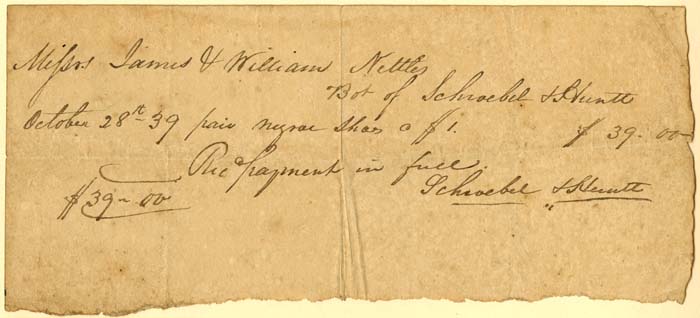 Messrs James & William Nettles
Bot of Schroebel & Huntt
October 28th 39 pair negroe Shoes @ $1. $ 39-00
Recd payment in full.
$39-00
Schroebel & Huntt